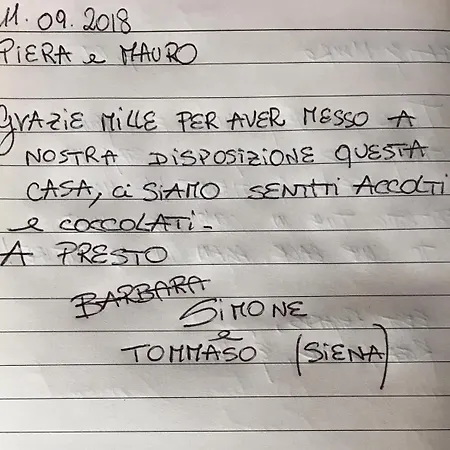 11.09.2018
PIERA e MAURO
GRAZIE MILLE PER AVER MESSO A
NOSTRA DISPOSIZIONE QUESTA
CASA, ci SIAMO SENTITI ACCOLTI
e COCCOLATI-
A PRESTO
BARBARA
SIMONE
e
TOMMASO (SIENA)